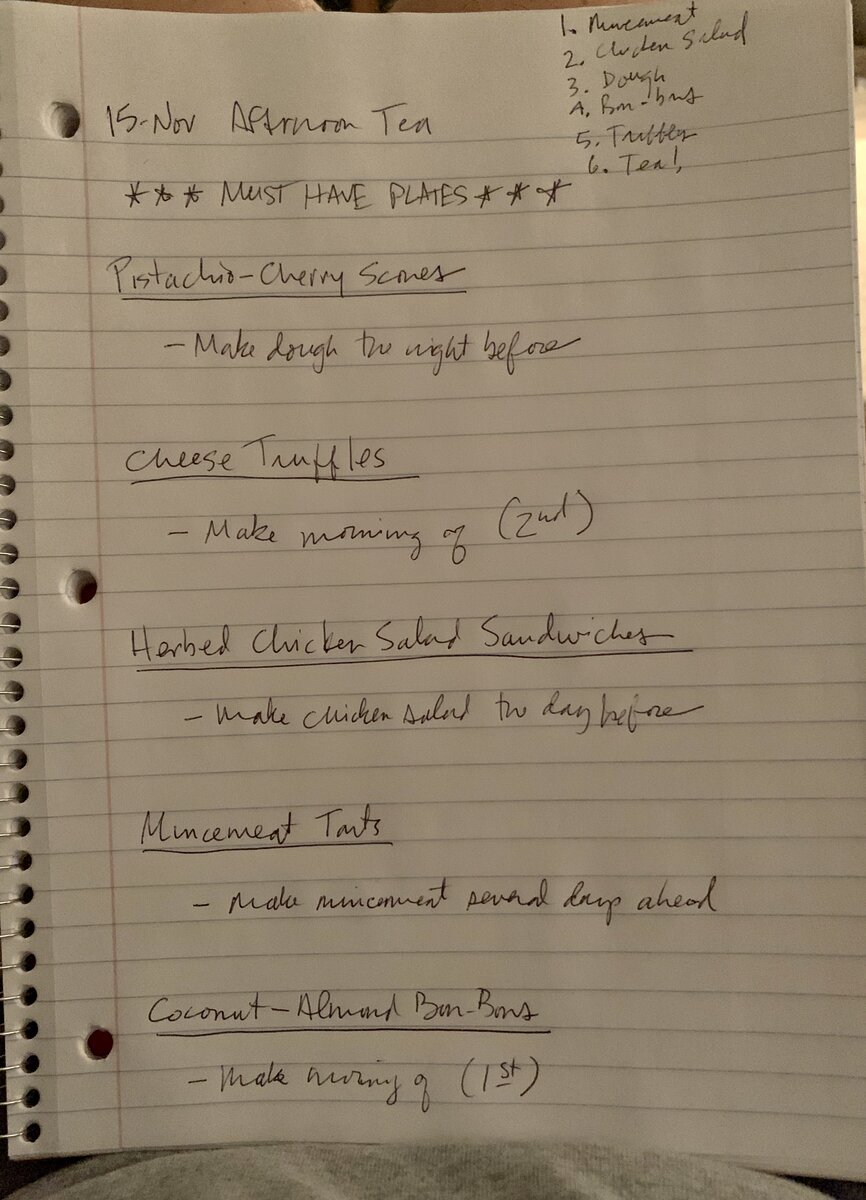 1. Mincemeat
2. Chicken Salad
3. Dough
4. Bon-bons
5. Truffles
6. Tea!
15-Nov Afternoon Tea
*** MUST HAVE PLATES ***
Pistachio-Cherry Scones
- Make dough the night before
Cheese Truffles
- Make morning of (2nd)
Herbed Chicken Salad Sandwiches
- Make chicken salad the day before
Mincemeat Tarts
- Make mincemeat several days ahead
Coconut-Almond Bon-Bons
- Make morning of (1st)